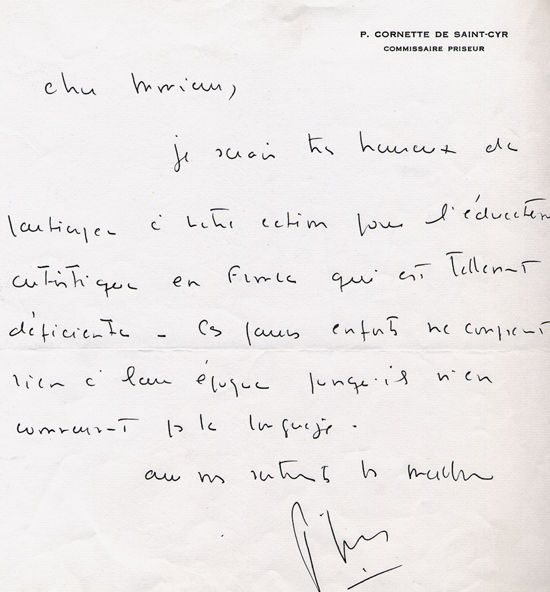 P. CORNETTE DE SAINT-CYR
COMMISSAIRE PRISEUR
cher Monsieur,
je serais très heureux de
participer à votre action pour l'éducation
artistique en France qui est tellement
déficiente - Ces jeunes enfants ne comprennent
rien à leur époque puisqu'ils n'en
connaissent pas le langage.
avec mes sentiments les meilleurs